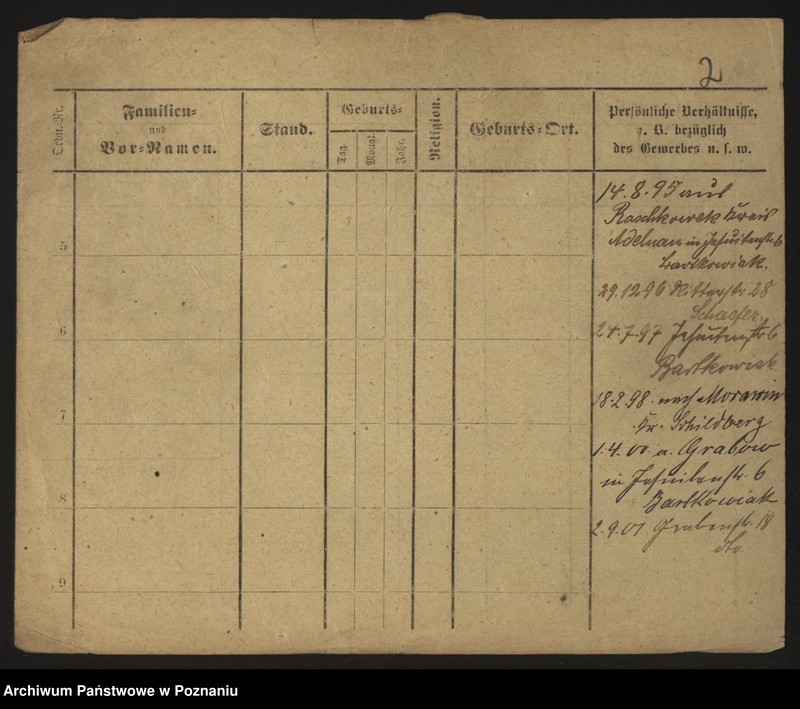 2
Ordn.-Nr.
Familien-
und
Vor-Namen.
Stand.
Geburts-
Tag.
Monat.
Jahr.
Religion.
Geburts-Ort.
Persönliche Verhältnisse,
z. B. bezüglich
des Gewerbes u. s. w.
5
6
7
8
9
14.8.95 aus
Raschkowek Kreis
Adelnau in Jesuitenstr. 6
Bartkowiak.
29.12.96 Ritterstr. 28
Schaefer.
24.7.97 Jesuitenstr. 6
Bartkowiak
18.2.98. nach Morawin
Kr. Schildberg
1.4.00 a. Grabow
in Jesuitenstr. 6
Bartkowiak
2.9.01 Grabenstr. 18
Archiwum Państwowe w Poznaniu